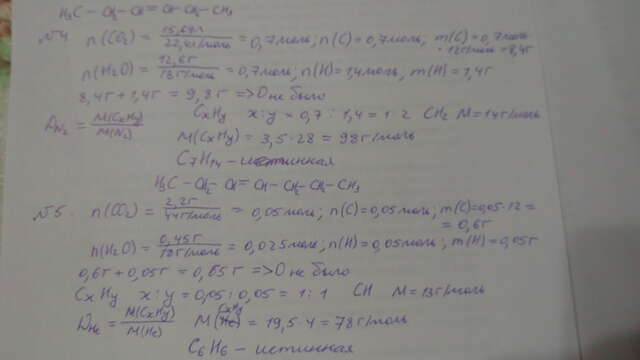 H₃C – CH₂ – CH = CH – CH₂ – CH₃
№4 n(CO₂) = 15,68л / 22,4л/моль = 0,7моль; n(C) = 0,7моль; m(C) = 0,7моль
· 12г/моль = 8,4г
n(H₂O) = 12,6г / 18г/моль = 0,7моль; n(H) = 1,4моль, m(H) = 1,4г
8,4г + 1,4г = 9,8г => O не было
D_N₂ = M(CxHy) / M(N₂) CxHy x : y = 0,7 : 1,4 = 1 : 2 CH₂ M = 14г/моль
M(CxHy) = 3,5 · 28 = 98г/моль
C₇H₁₄ – истинная
H₃C – CH₂ – CH = CH – CH₂ – CH₂ – CH₃
№5. n(CO₂) = 2,2г / 44г/моль = 0,05моль; n(C) = 0,05моль; m(C) = 0,05 · 12 =
= 0,6г
n(H₂O) = 0,45г / 18г/моль = 0,025моль; n(H) = 0,05моль; m(H) = 0,05г
0,6г + 0,05г = 0,65г => O не было
CxHy x : y = 0,05 : 0,05 = 1 : 1 CH M = 13г/моль
D_He = M(CxHy) / M(He) M(CxHy) = 19,5 · 4 = 78г/моль
C₆H₆ – истинная